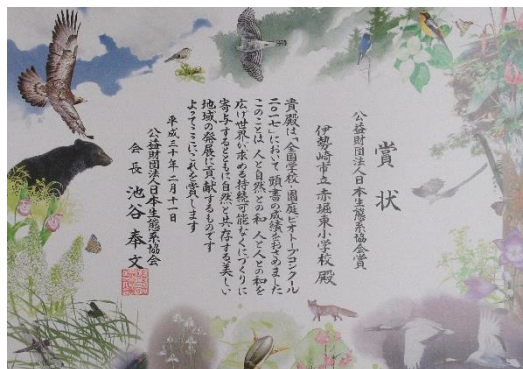 賞状
公益財団法人日本生態系協会賞
伊勢崎市立赤堀東小学校 殿
貴殿は、全国学校・園庭ビオトープコンクール
二〇一七において頭書の成績をおさめました
このことは 人と自然との和 人と人との和を
広げ世界が求める持続可能なくにづくりに
寄与するとともに、自然と共存する美しい
地域の発展に貢献するものです
よってここにこれを賞します
平成三十年二月十一日
公益財団法人日本生態系協会
会長 池谷奉文